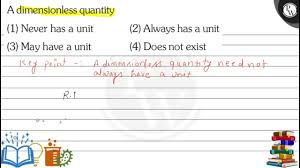 A dimensionless quantity
(1) Never has a unit (2) Always has a unit
(3) May have a unit (4) Does not exist
Key point -: A dimensionless quantity need not
always have a unit
R.I